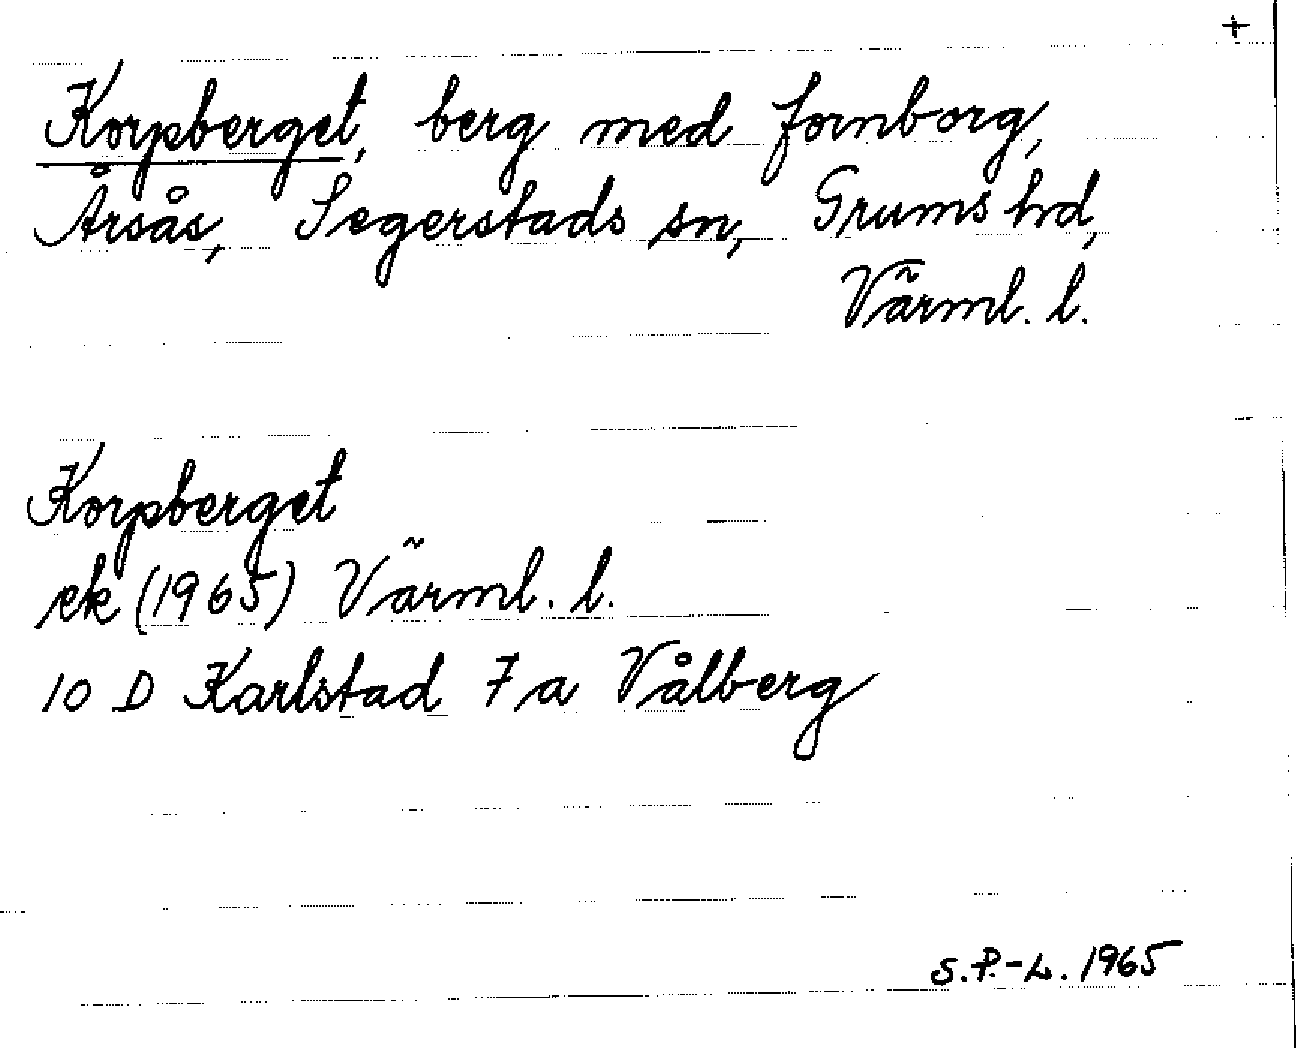 +
Korpberget, berg med fornborg,
Årsås, Segerstads sn, Grums hd,
Värml. l.
Korpberget
ek (1965) Värml. l.
10 D Karlstad 7 a Vålberg
S.P.-L. 1965